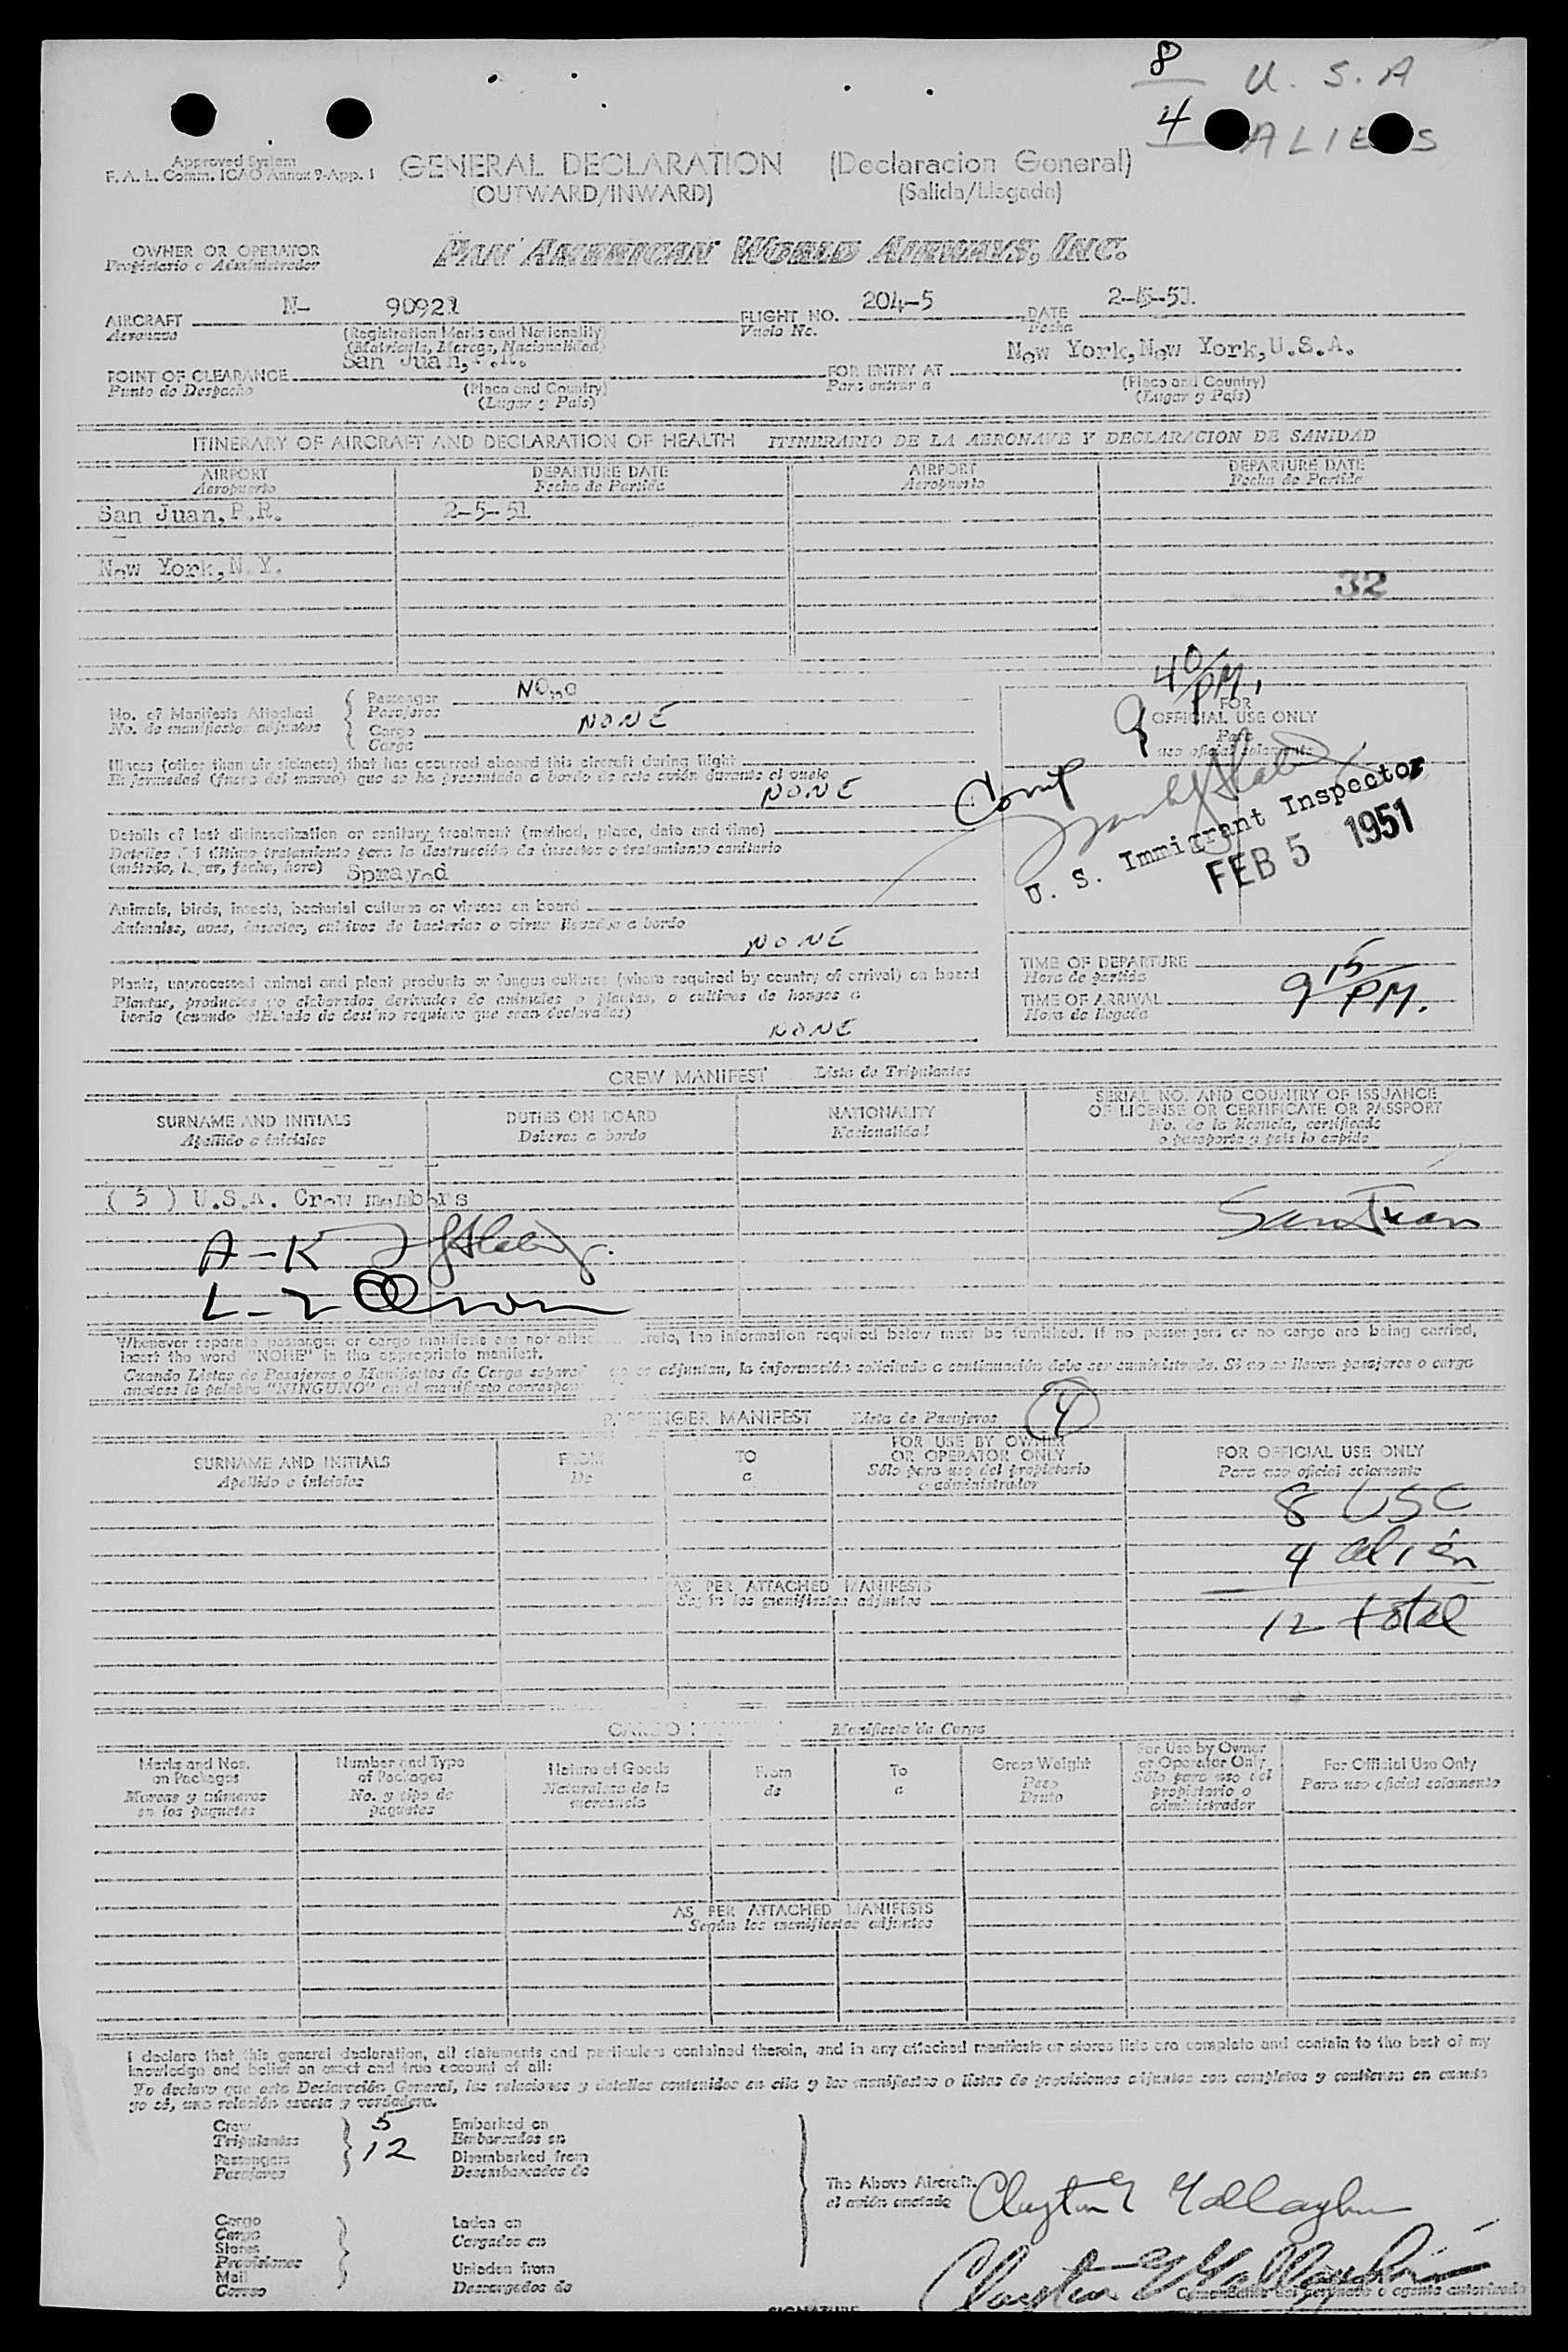 8 U.S.A
4 ALIENS
Approved System
F. A. L. Comm. ICAO Annex 9-App. 1
GENERAL DECLARATION (Declaracion General)
(OUTWARD/INWARD) (Salida/Llegada)
OWNER OR OPERATOR
Propietario o Administrador
PAN AMERICAN WORLD AIRWAYS, INC.
AIRCRAFT N- 90921 FLIGHT NO. 204-5 DATE 2-5-51
Aeronave (Registration Marks and Nationality) Vuelo No. Fecha
(Matricula, Marcas, Nacionalidad)
POINT OF CLEARANCE San Juan, P.R. FOR ENTRY AT New York, New York, U.S.A.
Punto de Despacho (Place and Country) Para entrar a (Place and Country)
(Lugar y País) (Lugar y País)
ITINERARY OF AIRCRAFT AND DECLARATION OF HEALTH ITINERARIO DE LA AERONAVE Y DECLARACION DE SANIDAD
AIRPORT DEPARTURE DATE AIRPORT DEPARTURE DATE
Aeropuerto Fecha de Partida Aeropuerto Fecha de Partida
San Juan, P.R. 2-5-51
New York, N.Y.
32
No. of Manifests Attached
No. de manifiestos adjuntos
Passenger None
Pasajeros
Cargo NONE
Carga
9 40/PM.
FOR
OFFICIAL USE ONLY
Para
uso oficial solamente
Illness (other than air sickness) that has occurred aboard this aircraft during flight
Enfermedad (fuera del mareo) que se ha presentado a bordo de este avión durante el vuelo
NONE
U. S. Immigrant Inspector
FEB 5 1951
Details of last disinsectization or sanitary treatment (method, place, date and time)
Detalles del último tratamiento para la destrucción de insectos o tratamiento sanitario
(método, lugar, fecha, hora) Sprayed
Animals, birds, insects, bacterial cultures or viruses on board
Animales, aves, insectos, cultivos de bacterias o virus llevados a bordo
NONE
Plants, unprocessed animal and plant products or fungus cultures (where required by country of arrival) on board
Plantas, productos no elaborados derivados de animales o plantas, o cultivos de hongos a
bordo (cuando el Estado de destino requiere que sean declarados)
NONE
TIME OF DEPARTURE
Hora de partida
TIME OF ARRIVAL 9 15/PM.
Hora de llegada
CREW MANIFEST Lista de Tripulantes
SURNAME AND INITIALS DUTIES ON BOARD NATIONALITY SERIAL NO. AND COUNTRY OF ISSUANCE
OF LICENSE OR CERTIFICATE OR PASSPORT
Apellido e iniciales Deberes a bordo Nacionalidad No. de la licencia, certificado
o pasaporte y pais lo expide
( 5 ) U.S.A. Crew members
San Juan
A-K
L-Z
Whenever separate passenger or cargo manifests are not attac reto, the information required below must be furnished. If no passengers or no cargo are being carried,
insert the word "NONE" in the appropriate manifest.
Cuando Listas de Pasajeros o Manifiestos de Carga separa no se adjuntan, la información solicitada a continuación debe ser suministrada. Si no se llevan pasajeros o carga
anótese la palabra "NINGUNO" en el manifiesto correspon
PASSENGER MANIFEST Lista de Pasajeros 4
SURNAME AND INITIALS FROM TO FOR USE BY OWNER
OR OPERATOR ONLY FOR OFFICIAL USE ONLY
Apellido e iniciales De a Sólo para uso del propietario
o administrador Para uso oficial solamente
8 USC
4 alien
12 total
AS PER ATTACHED MANIFESTS
Según los manifiestos adjuntos
CARGO Manifiesto de Carga
Marks and Nos.
on Packages
Marcas y números
en los paquetes
Number and Type
of Packages
No. y tipo de
paquetes
Nature of Goods
Naturaleza de la
mercancía
From
de
To
a
Gross Weight
Peso
Bruto
For Use by Owner
or Operator Only
Sólo para uso del
propietario o
administrador
For Official Use Only
Para uso oficial solamente
AS PER ATTACHED MANIFESTS
Según los manifiestos adjuntos
I declare that this general declaration, all statements and particulars contained therein, and in any attached manifests or stores lists are complete and contain to the best of my
knowledge and belief an exact and true account of all:
Yo declaro que esta Declaración General, las relaciones y detalles contenidos en ella y los manifiestos o listas de provisiones adjuntos son completos y contienen en cuanto
yo sé, una relación exacta y verdadera.
Crew 5 Embarked on
Tripulantes Embarcados en
Passengers 12 Disembarked from
Pasajeros Desembarcados de
The Above Aircraft.
el avión anotado
Clayton Y Gallagher
Cargo Laden on
Carga Cargados en
Stores
Provisiones Unladen from
Mail
Correo Descargados de
Clayton Y Gallagher
Comandante del aeronave o agente autorizado
SIGNATURE